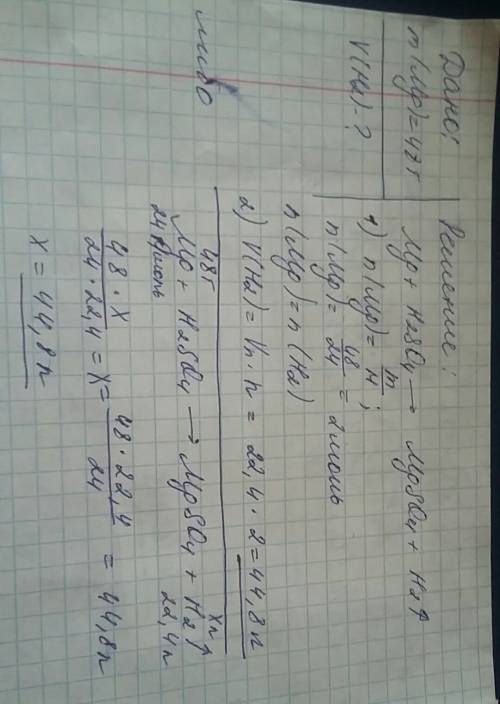 Дано:
m(Mg)=48г
V(H2)-?
Решение:
Mg + H2SO4 → MgSO4 + H2↑
1) n(Mg) = m/M;
n(Mg) = 48/24 = 2моль
n(Mg) = n(H2)
2) V(H2) = Vn · n = 22,4 · 2 = 44,8л
либо
48г xл
Mg + H2SO4 → MgSO4 + H2↑
24г/моль 22,4л
48 · x / 24 · 22,4 = x = 48 · 22,4 / 24 = 44,8л
x = 44,8л